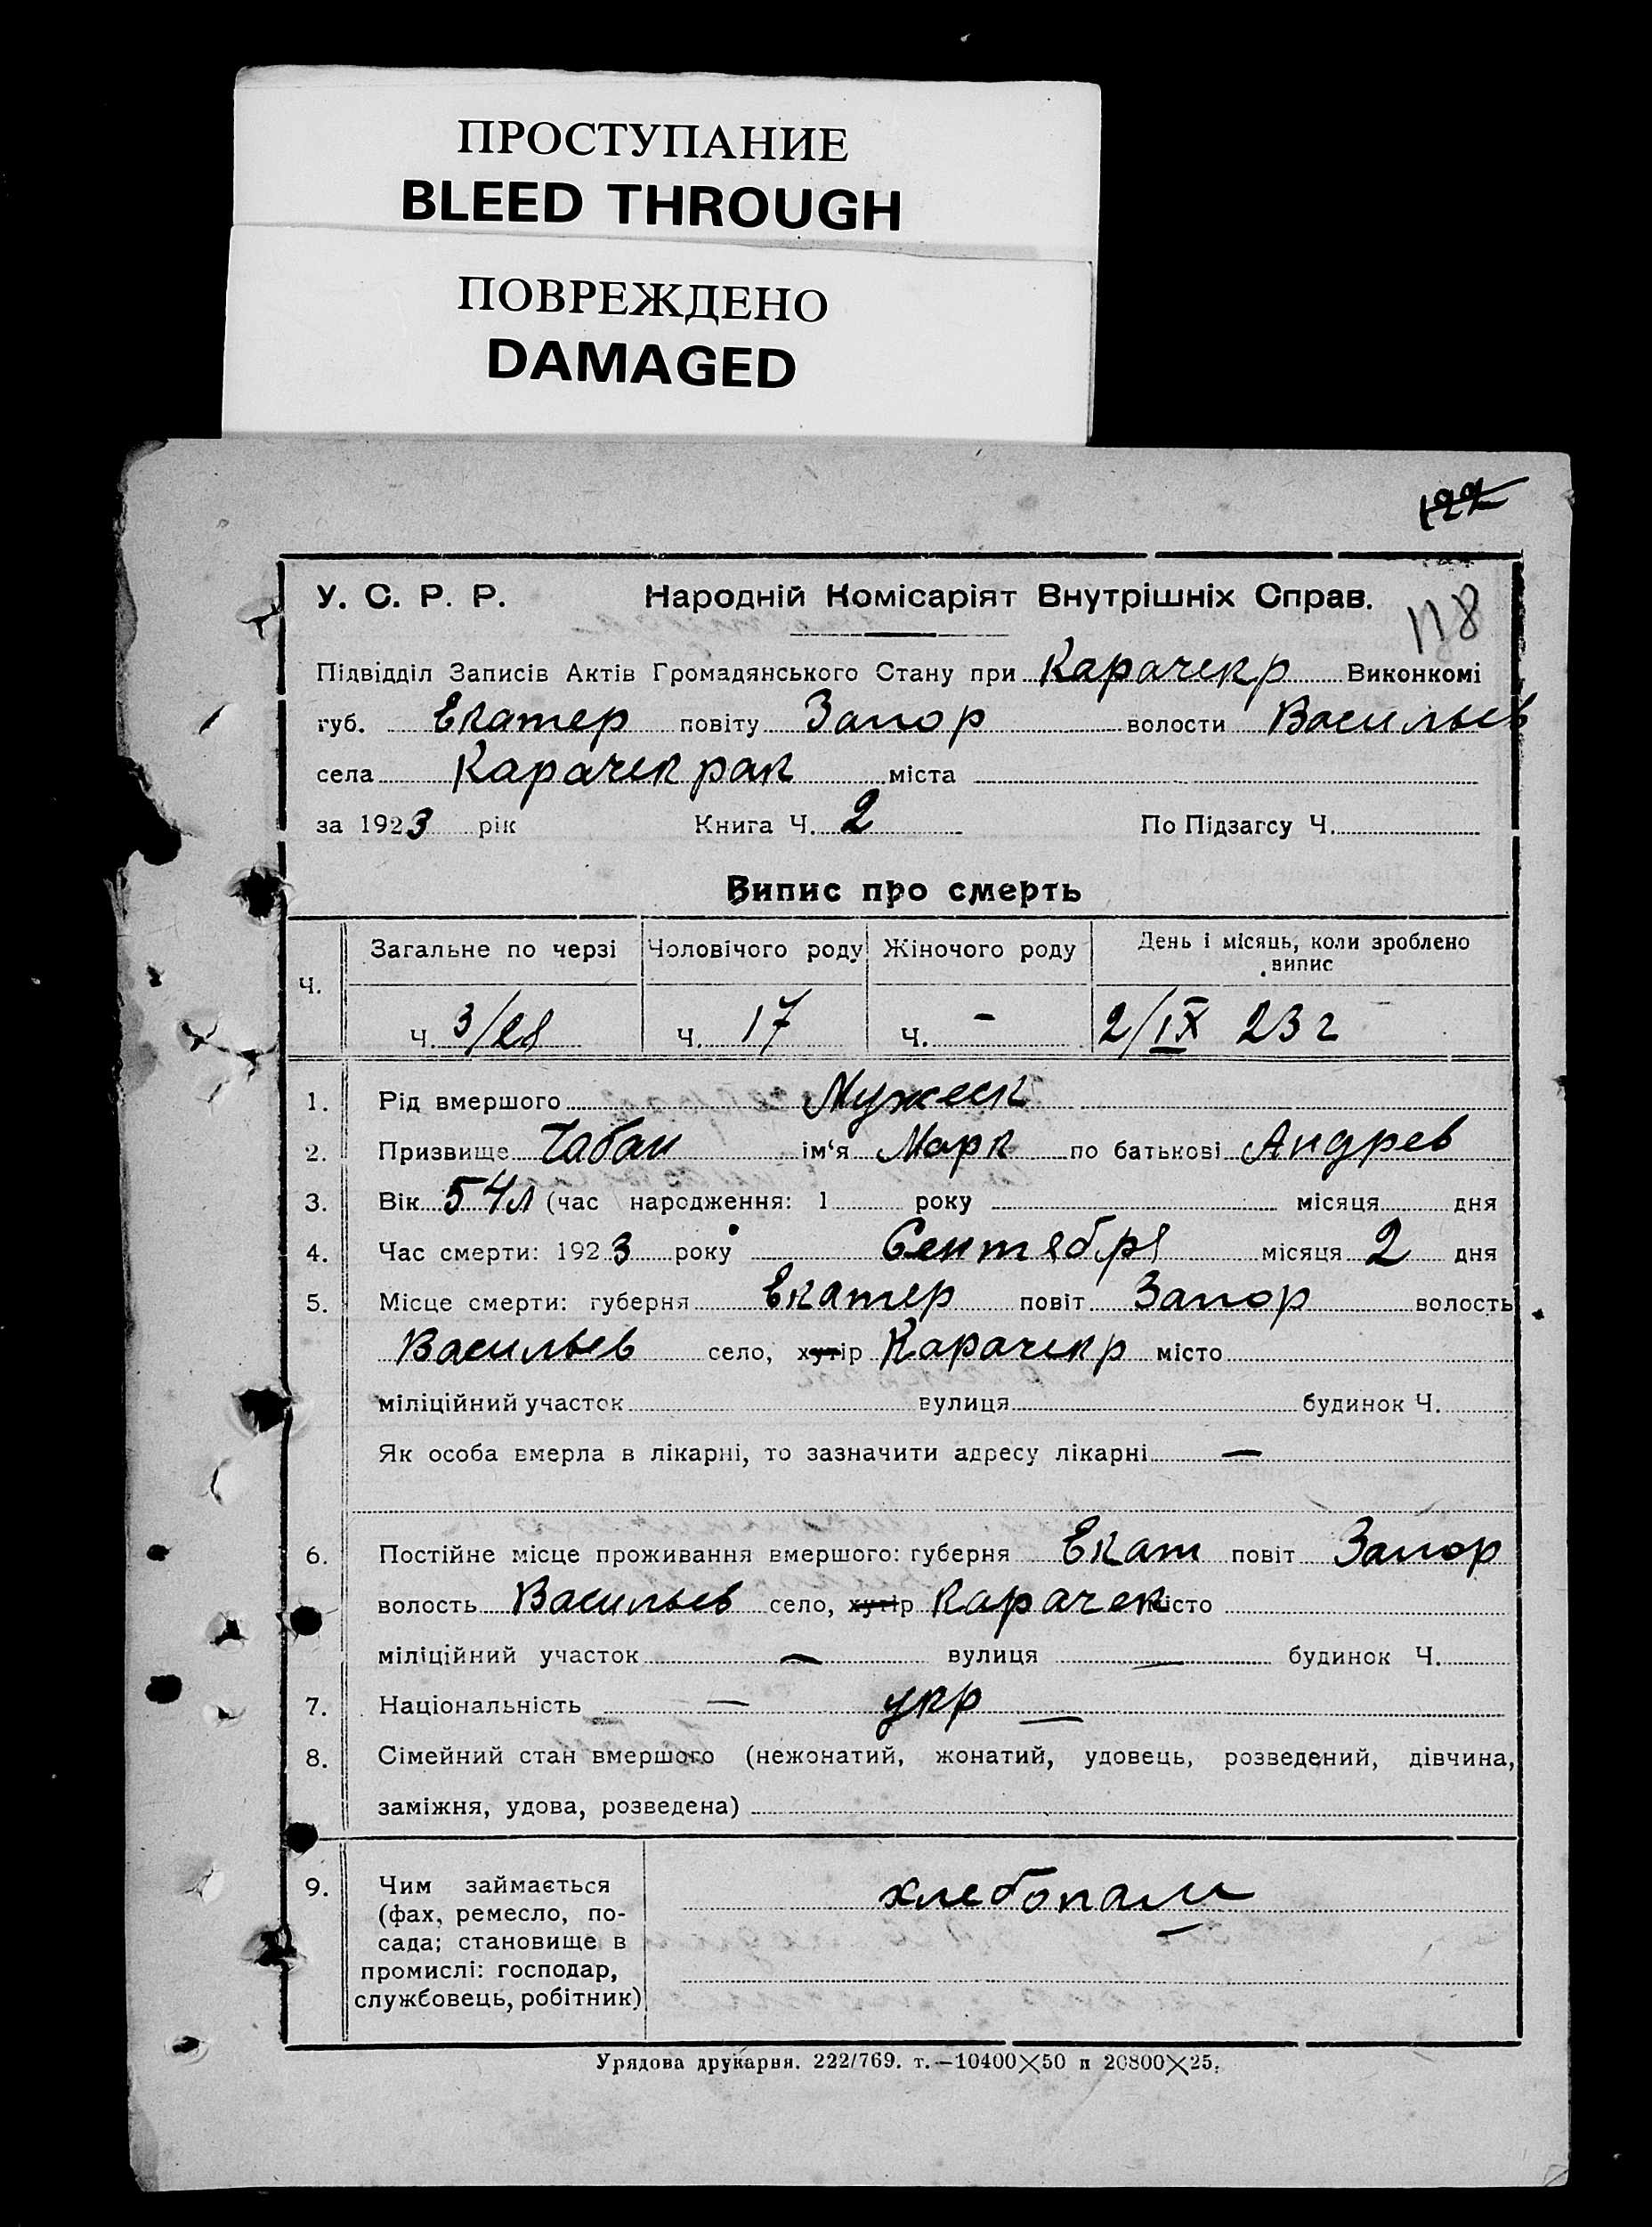 ПРОСТУПАНИЕ
BLEED THROUGH
ПОВРЕЖДЕНО
DAMAGED
122
118
У. С. Р. Р. Народній Комісаріят Внутрішніх Справ.
Підвідділ Записів Актів Громадянського Стану при Карачекр Виконкомі
губ. Екатер повіту Запор волости Васильев
села Карачекрак міста
за 1923 рік Книга Ч. 2 По Підзагсу Ч.
Випис про смерть
Ч. Загальне по черзі Чоловічого роду Жіночого роду День і місяць, коли зроблено
випис
Ч. 3/28 Ч. 17 Ч. - 2/IX 23 г
1. Рід вмершого Мужеск
2. Призвище Чабан ім‘я Марк по батькові Андрев
3. Вік 54 л (час народження: 1 року місяця дня
4. Час смерти: 1923 року Сентября місяця 2 дня
5. Місце смерти: губерня Екатер повіт Запор волость
Васильев село, хутір Карачекр місто
міліційний участок вулиця будинок Ч.
Як особа вмерла в лікарні, то зазначити адресу лікарні —
6. Постійне місце проживання вмершого: губерня Екат повіт Запор
волость Васильев село, хутір Карачек місто
міліційний участок — вулиця — будинок Ч.
7. Національність — укр —
8. Сімейний стан вмершого (нежонатий, жонатий, удовець, розведений, дівчина,
заміжня, удова, розведена)
9. Чим займається хлебопаш
(фах, ремесло, по-
сада; становище в
промислі: господар,
службовець, робітник)
Урядова друкарня. 222/769. т.—10400×50 п 20800×25.